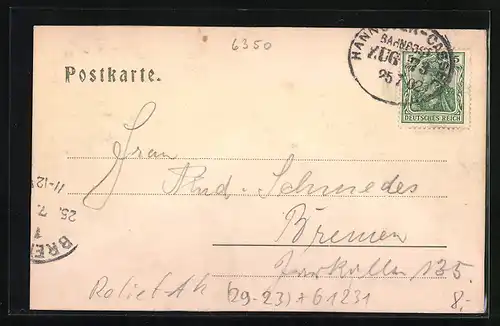 6350
HANNOVER-CASSEL
BAHNPOST
ZUG
25 7 02
5
DEUTSCHES REICH
Postkarte.
Frau
Rud. Schmedes
Bremen
135.
11-12
25. 7.
BREM
Relief Ak (29-23) + G1231
8.-